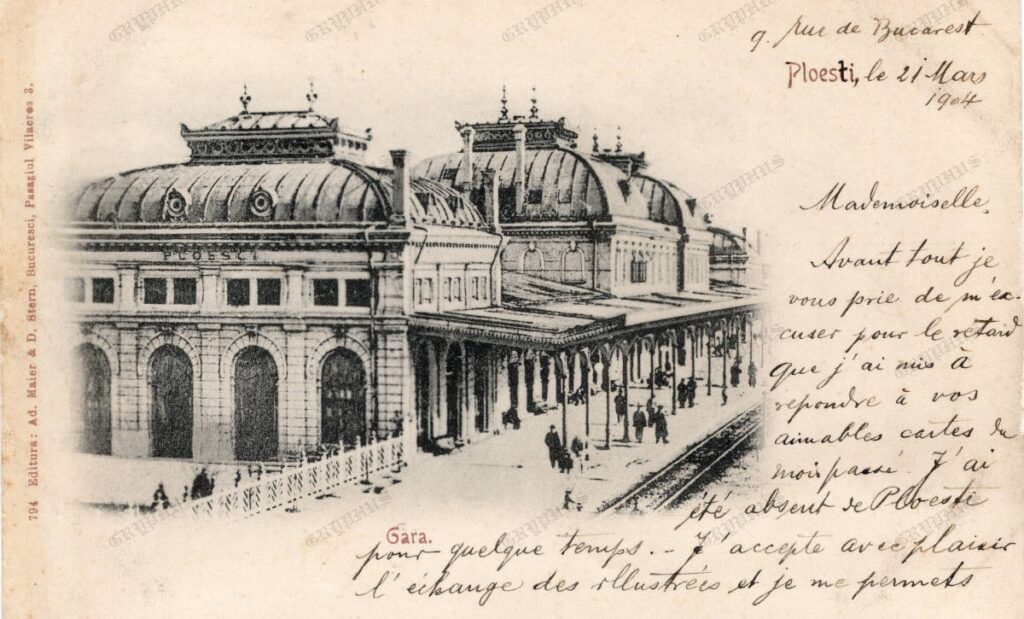 9. Rue de Bucarest
Ploesti, le 21 Mars
1904
Mademoiselle,
Avant tout je
vous prie de m'ex-
cuser pour le retard
que j'ai mis à
repondre à vos
aimables cartes du
mois passé. J'ai
été absent de Ploesti
pour quelque temps. – J'accepte avec plaisir
l'échange des illustrées et je me permets
Gara.
PLOESCI
794 Editura: Ad. Maier & D. Stern, Bucuresci, Pasagiul Vilacros 3.